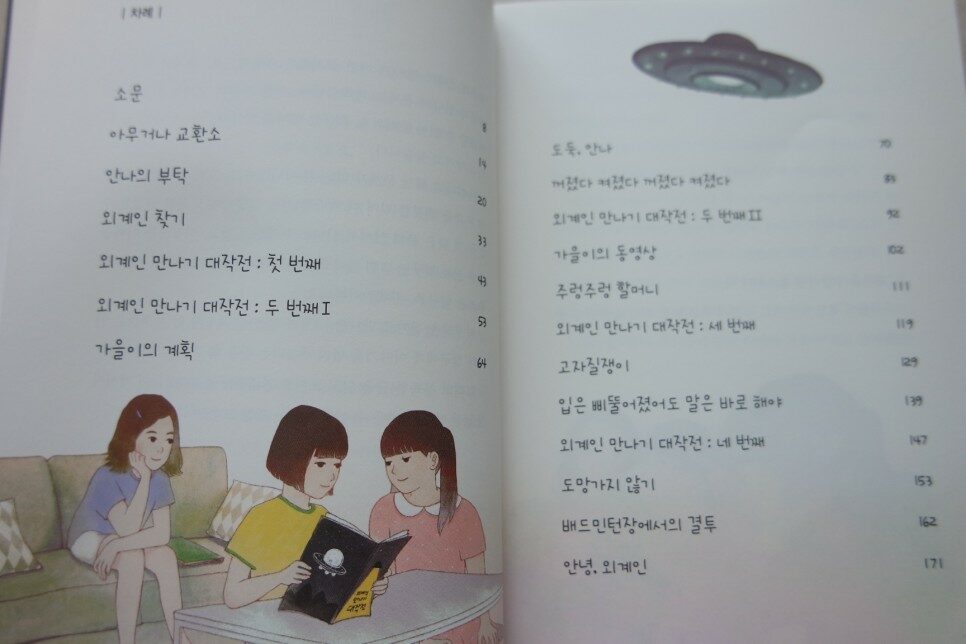 | 차례 |
소문 8
아무거나 교환소 14
안나의 부탁 20
외계인 찾기 33
외계인 만나기 대작전 : 첫 번째 43
외계인 만나기 대작전 : 두 번째 I 53
가을이의 계획 64
대작전
도둑, 안나 70
꺼졌다 켜졌다 꺼졌다 켜졌다
외계인 만나기 대작전 : 두 번째 II 92
가을이의 동영상 102
주렁주렁 할머니 111
외계인 만나기 대작전 : 세 번째 119
고자질쟁이 129
입은 삐뚤어졌어도 말은 바로 해야 139
외계인 만나기 대작전 : 네 번째 147
도망가지 않기 153
배드민턴장에서의 결투 162
안녕, 외계인 171